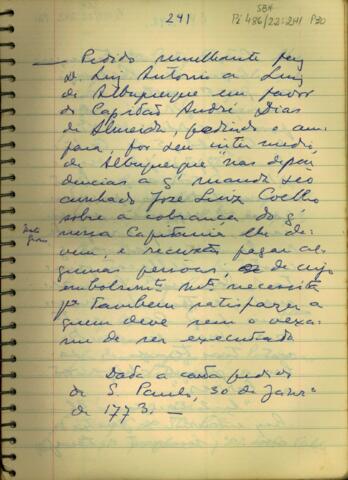 241
SBH
Pi 486/22:241 P20
— Pedido semelhante fez
D. Luiz Antonio a Luiz
de Albuquerque em favor
do Capitão André Dias
de Almeida, pedindo o am-
paro, por seu intermedio,
de Albuquerque "nas depen-
dencias a q' manda seo
cunhado José Luiz Coelho
sobre a cobrança do q'
nessa Capitania lhe de-
vem, e recusão pagar al-
gumas pessoas, de cujo
embolsamto necessita
pa tambem satisfazer a
quem deve sem o vexa-
me de ser executado
Dada a carta
de S. Paulo, 30 de Janro
de 1773. —